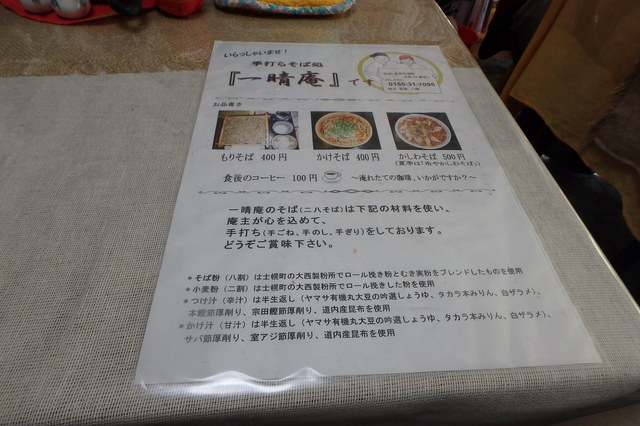 いらっしゃいませ！
手打ちそば処
『一晴庵』です
0155-31-7095
お品書き
もりそば 400円
かけそば 400円
かしわそば 500円
(夏季は「冷やかしわそば」)
食後のコーヒー 100円
～淹れたての珈琲、いかがですか？～
一晴庵のそば(二八そば)は下記の材料を使い、
庵主が心を込めて、
手打ち(手ごね、手のし、手ぎり)をしております。
どうぞご賞味下さい。
●そば粉（八割）は士幌町の大西製粉所でロール挽き粉とむき実粉をブレンドしたものを使用
●小麦粉（二割）は士幌町の大西製粉所でロール挽きした粉を使用
●つけ汁（辛汁）は半生返し（ヤマサ有機丸大豆の吟選しょうゆ、タカラ本みりん、白ザラメ）、
本鰹節厚削り、宗田鰹節厚削り、道内産昆布を使用
●かけ汁（甘汁）は半生返し（ヤマサ有機丸大豆の吟選しょうゆ、タカラ本みりん、白ザラメ）、
サバ節厚削り、室アジ節厚削り、道内産昆布を使用